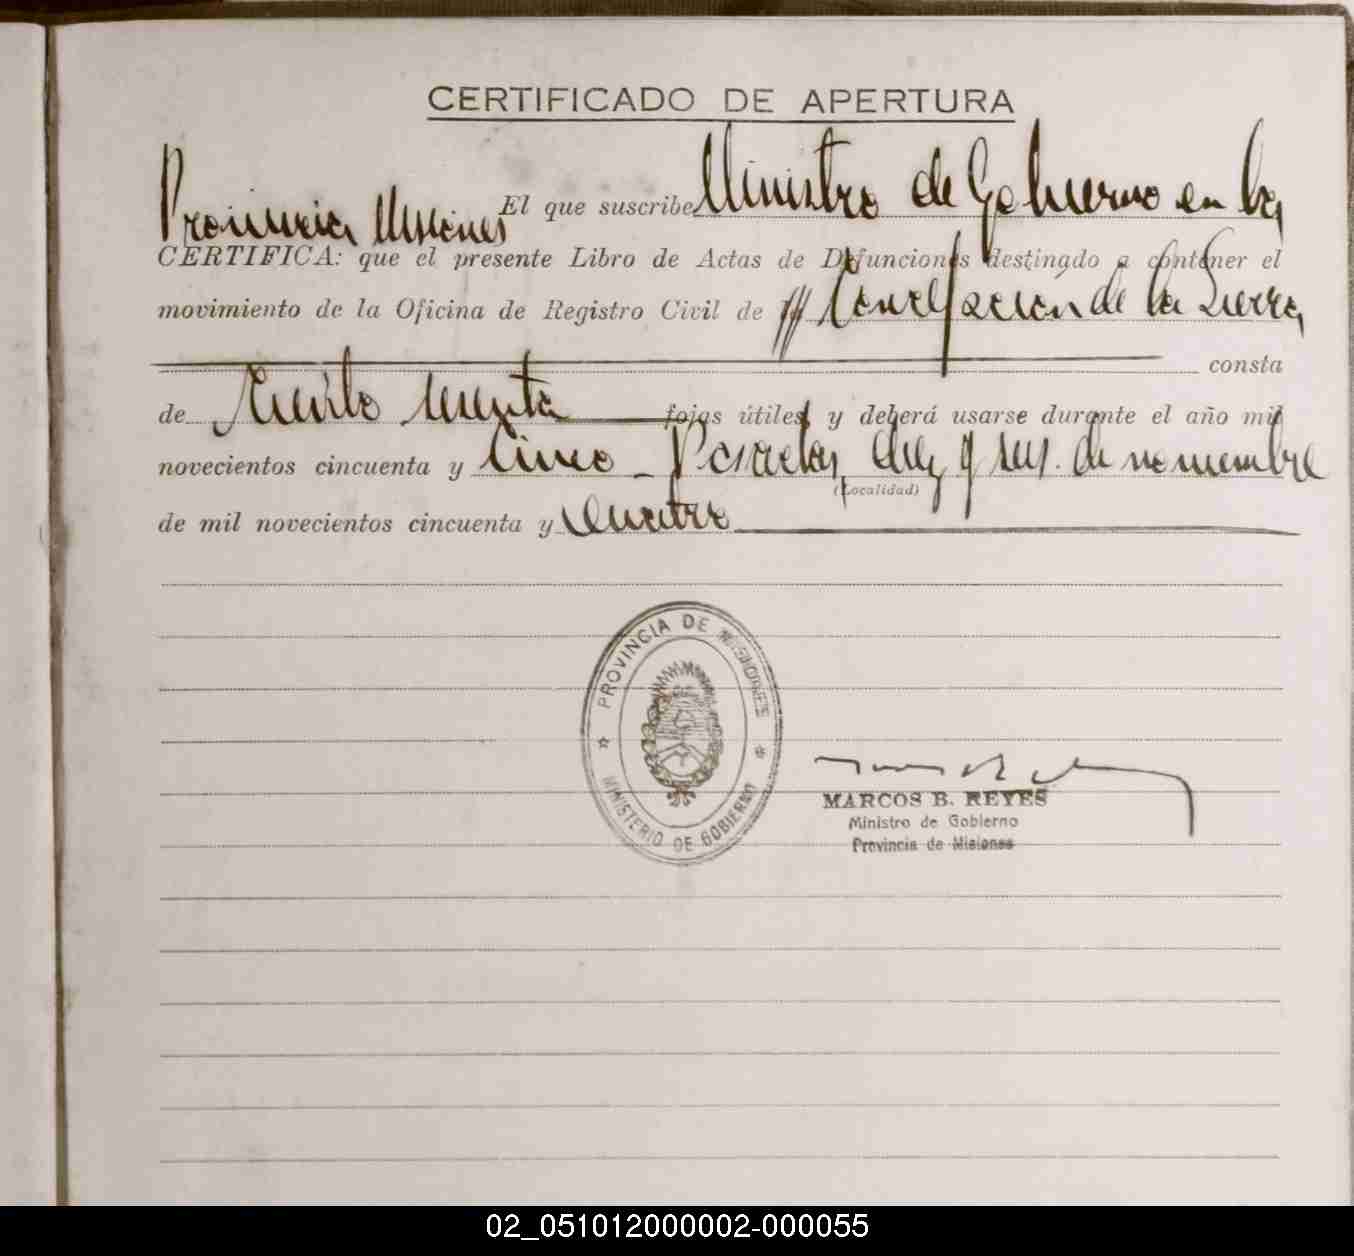 CERTIFICADO DE APERTURA
El que suscribe Ministro de Gobierno en la
Provincia Misiones
CERTIFICA: que el presente Libro de Actas de Defunciones destinado a contener el
movimiento de la Oficina de Registro Civil de Concepción de la Sierra
consta
de fojas útiles, y deberá usarse durante el año mil
novecientos cincuenta y cinco - Posadas, diez y seis de noviembre
(Localidad)
de mil novecientos cincuenta y cuatro
PROVINCIA DE MISIONES
MINISTERIO DE GOBIERNO
MARCOS B. REYES
Ministro de Gobierno
Provincia de Misiones
02_051012000002-000055